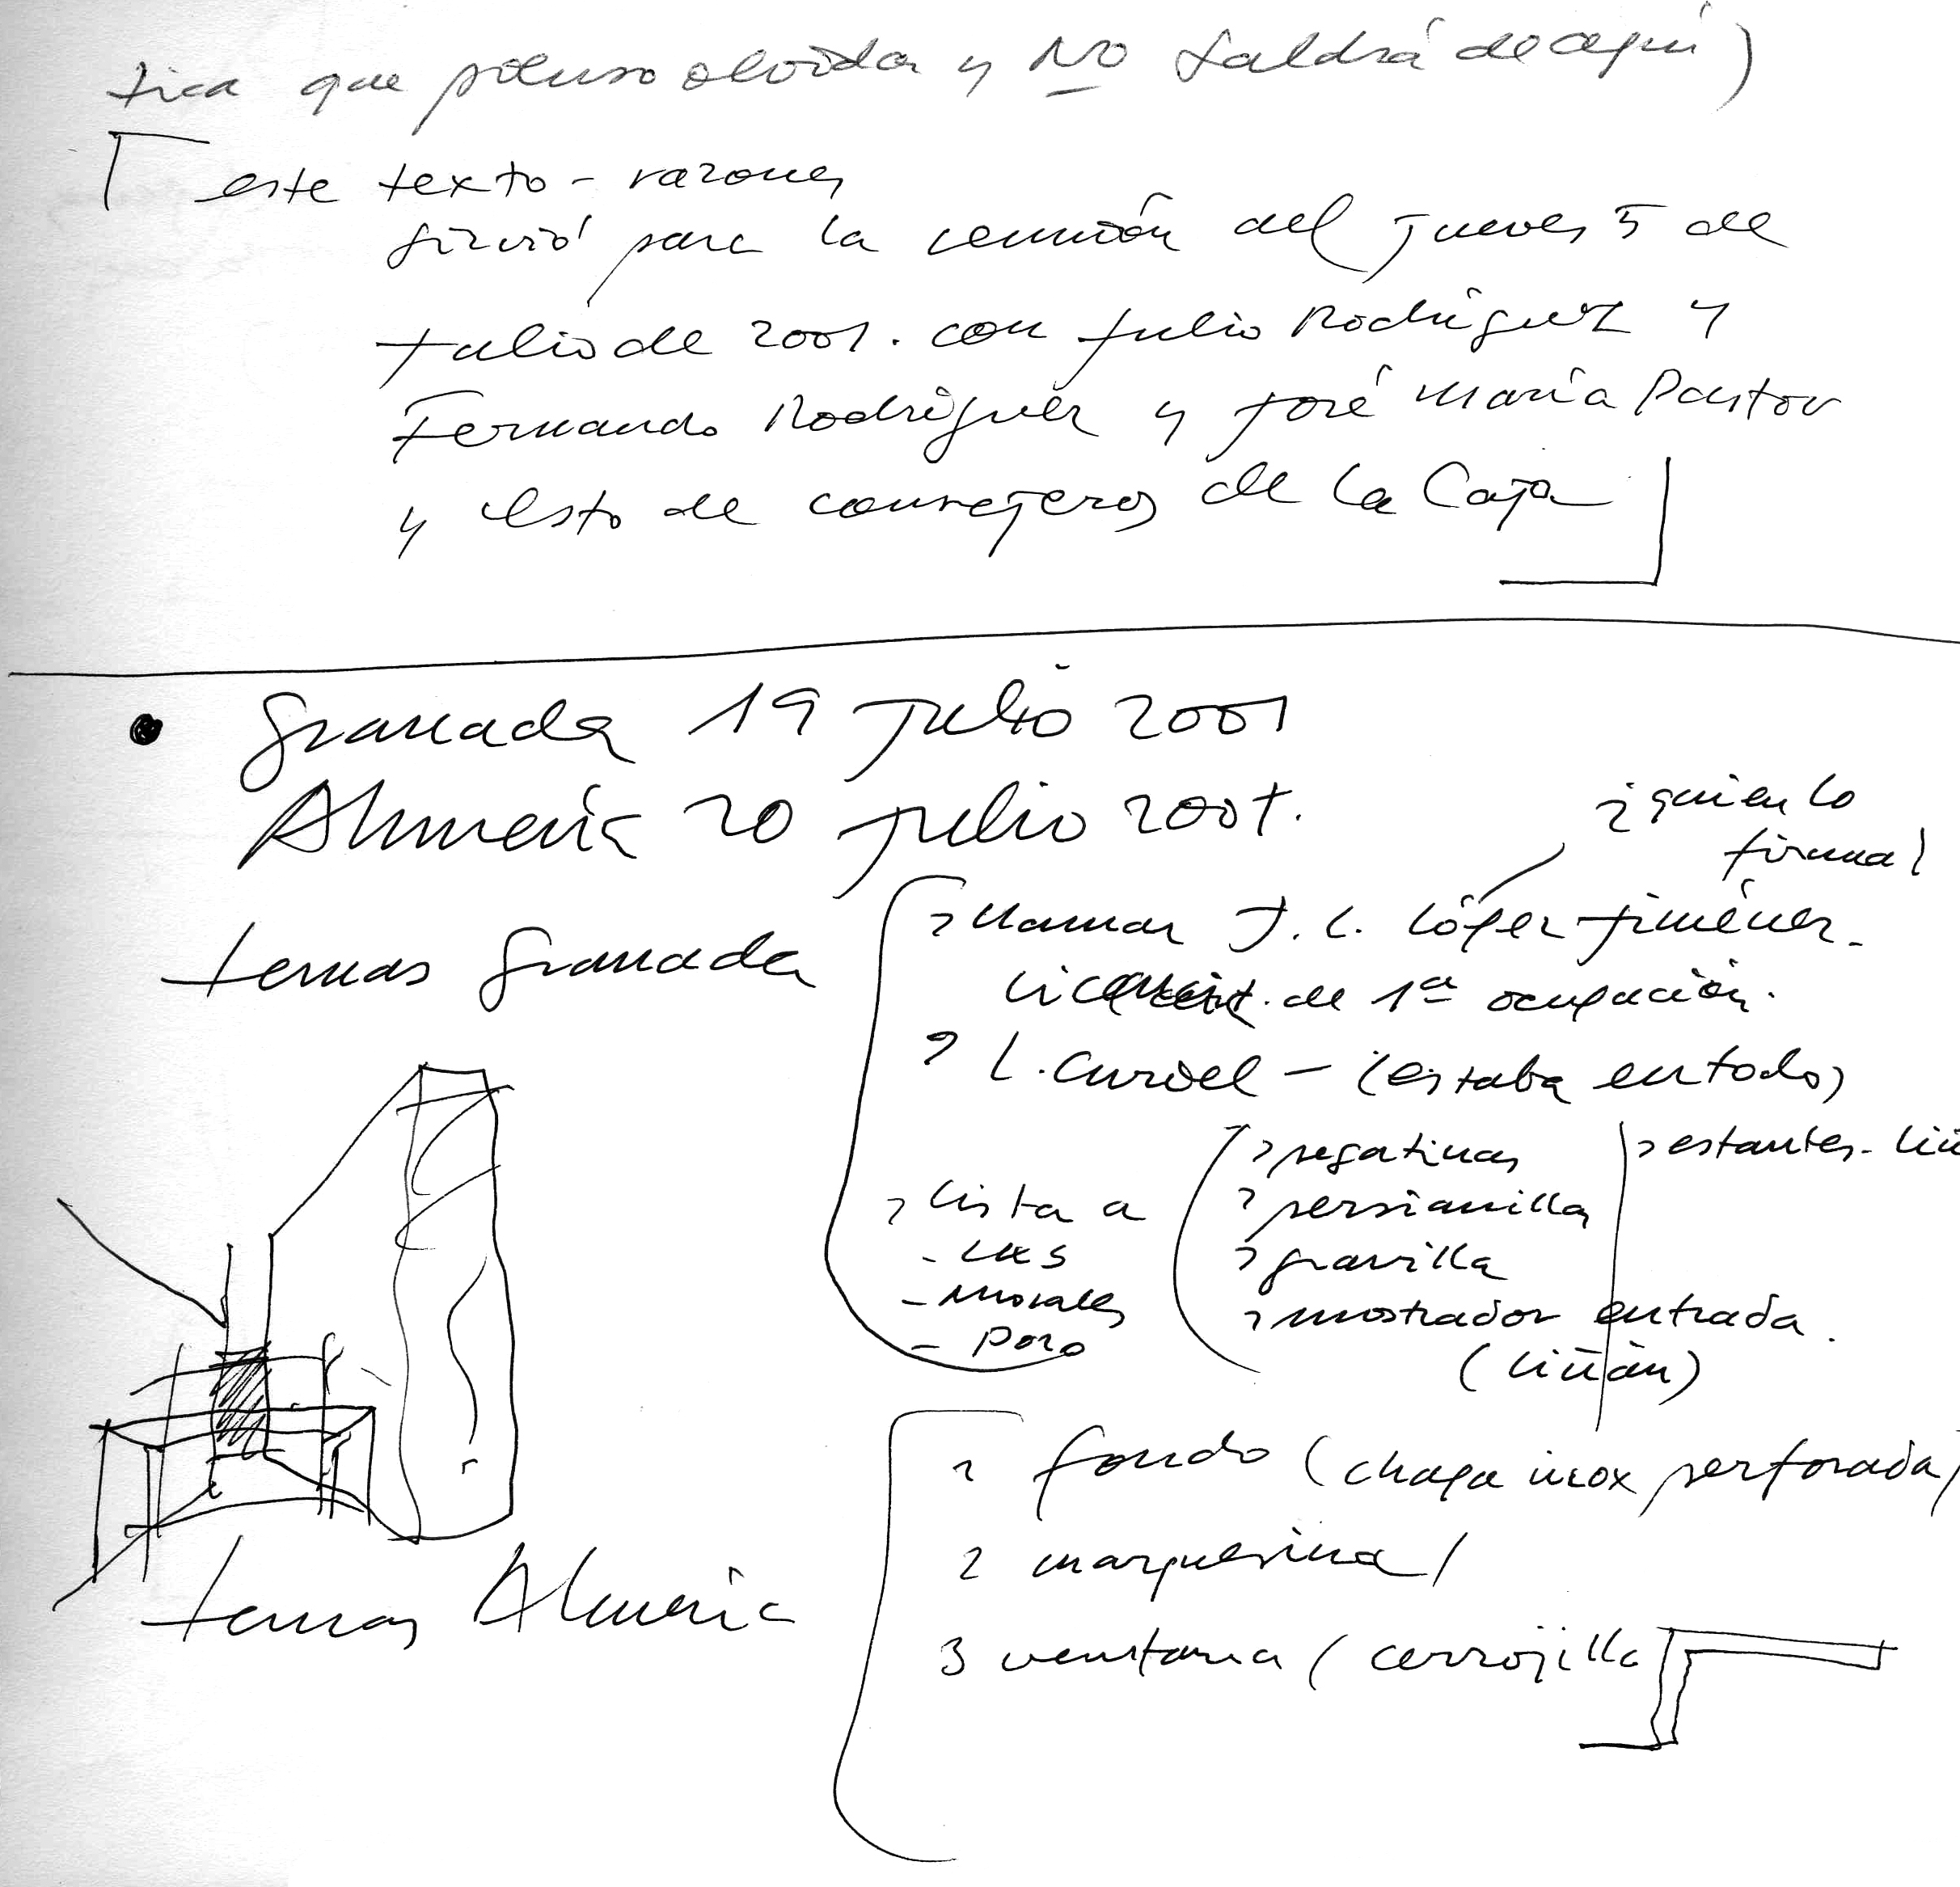 tica que pienso olvidar y NO saldrá de aquí)
este texto - razones
sirvió para la reunión del jueves 5 de
julio de 2001. con Julio Rodríguez y
Fernando Rodríguez y José María Pastor
y resto de consejeros de la Caja
• Granada 19 julio 2001
Almería 20 julio 2001.
¿quien lo
firma?
temas Granada
llamar J. L. López Jiménez.
de 1ª ocupación.
L. Curiel - (estaba en todo)
lista a
- Morales
- Pozo
persianilla
gravilla
mostrador entrada.
(Liñán)
estantes - Liñ
temas Almería
1 fondo (chapa inox perforada)
2 marquesina
3 ventana (cerrojilla